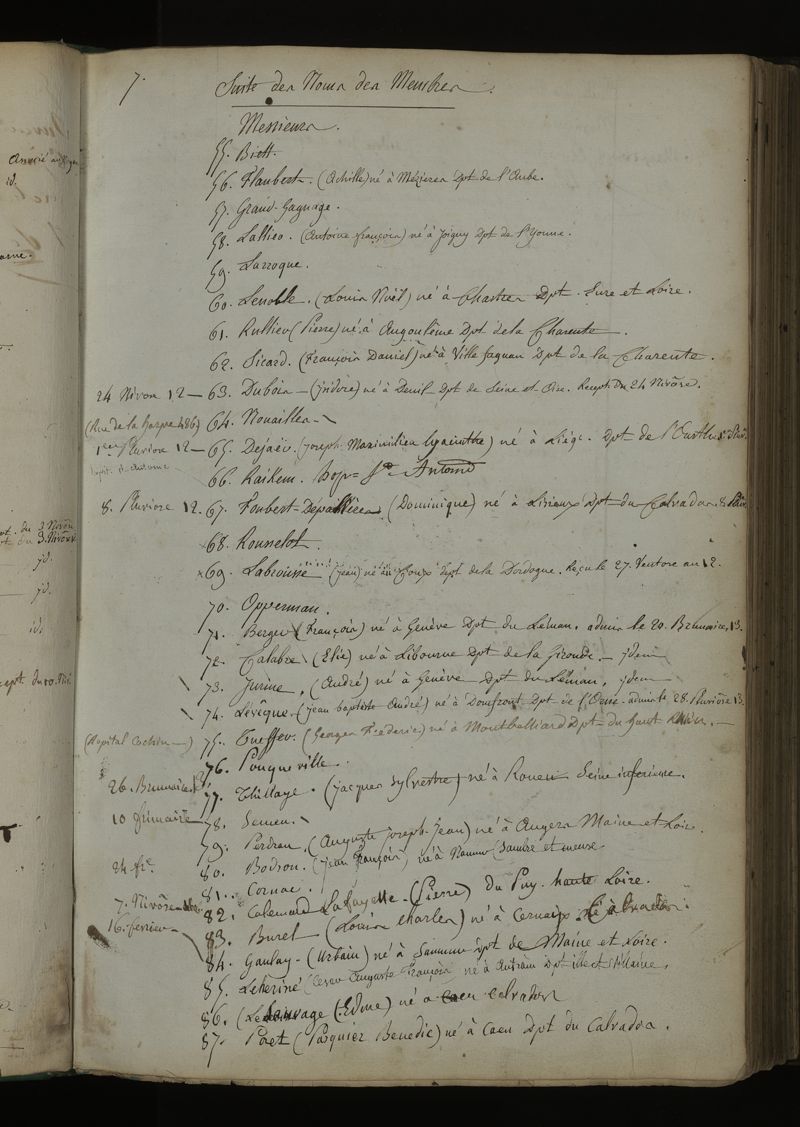 Associé
id.
7.
Suite des Noms des Membres.
Messieurs.
55. Biett.
56. Flaubert. (Achille) né à Mézières Dpt de l'Aube.
57. Grand-Gagnage.
58. Lallier. (Antoine françois) né à Joigny Dpt de l'Yonne.
59. Larroque.
60. Lenoble. (Louis Noël) né à Chartres Dpt. Eure et Loire.
61. Rullier (Pierre) né à Angoulême Dpt de la Charente.
62. Sicard. (François Daniel) né à Ville fagnan Dpt de la Charente.
24 Nivose 12 — 63. Dubois — (isidore) né à Deuil Dpt de Seine et Oise. Recept. Du 24 Nivôse.
(Rue de la harpe 486) 64. Nouailles —
1er Pluviose 12 — 65. Dejaër. (joseph Maximilien hyacinthe) né à Liège. Dpt de l'Ourthe
66. Raikem. hop= St Antoine
8. Pluviose 12. 67. Foubert-Dépallières (Dominique) né à Lisieux Dpt du Calvados
68. Rousselot.
69. Labrousse (jean) né Dpt de la Dordogne. Reçu le 27. Ventose an 12.
70. Opperman.
71. Berger (François) né à Genève Dpt du Léman. admis le 20. Brumaire. 13.
72. Calabre (Elie) né à Libourne Dpt de la Gironde. — idem
73. Jurine. (André) né à Genève Dpt du Léman. idem
74. Levêque. (jean baptiste André) né à Domfront Dpt de l'Orne. admis le 28. Pluviôse 13.
(hopital Cochin —) 75. Tueffer. (Georges Frederic) né à Montbelliard Dpt du haut Rhin. —
76. Pouqueville.
26. Brumaire 77. Thillaye. (jacques Sylvestre) né à Rouen Seine inferieure.
10 frimaire — 78. Semen.
79. Perdreau. (Auguste joseph-jean) né à Angers Maine et Loire.
24. fre. 80. Bodson. (jean François) né à Namur (Sambre et meuse
81. Cornac.
7. Nivôse 82. Calemard Lafayette (Pierre) du Puy haute Loire.
16. fevrier — 83. Buret (Louis Charles) né à Calvados.
84. Gaulay — (Urbain) né à Saumur Dpt de Maine et Loire.
85. Auguste François) né à Antrain Dpt ille et Vilaine.
86. (Lesauvage (Edme) né a Caen Calvados
87. Poet (Pasquier Benedic) né à Caen Dpt du Calvados.